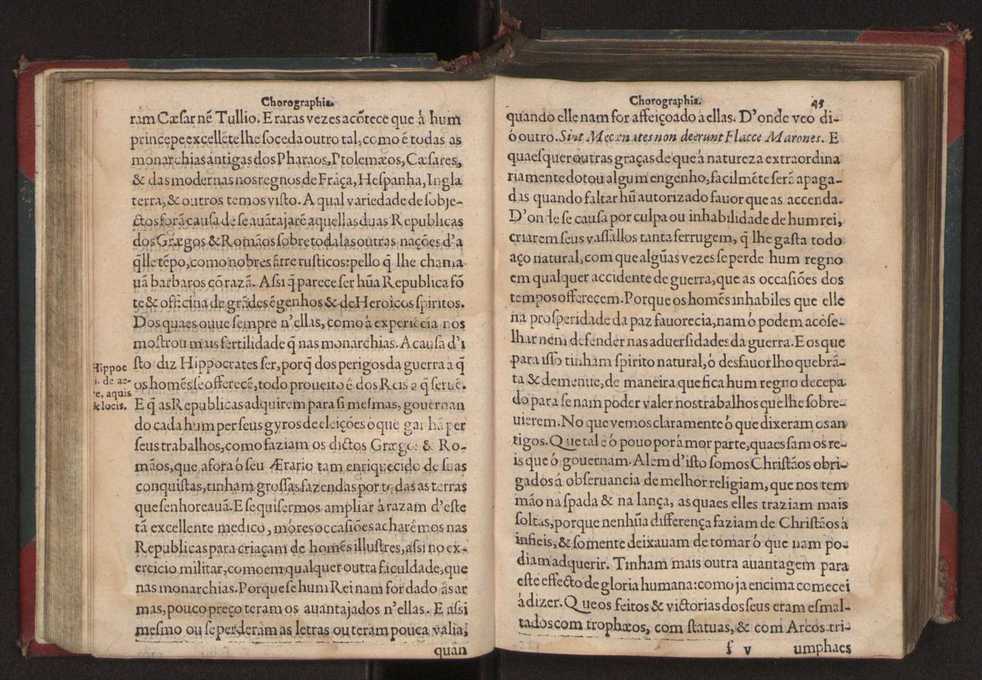 Chorographia.
ram Cæsar nẽ Tullio. E raras vezes acõtece que á hum
princepe excellẽte lhe soceda outro tal, como é todas as
monarchias ántigas dos Pharaos, Ptolemæos, Cæsares,
& das modernas nos regnos de Frãça, Hespanha, Ingla
terra, & outros temos visto. A qual variedade de sobje-
ctos forã causa de se auãtajarẽ aquellas duas Republicas
dos Grægos & Romãos sobre todalas outras nações d'a
q̃lle tẽpo, como nobres ãtre rusticos: pello q̃ lhe chama
uã barbaros cõ razã. Assi q̃ parece ser hũa Republica fó
te & officina de grãdes ẽgenhos & de Heroicos spiritos.
Dos quaes ouue sempre n'ellas, como á experiẽcia nos
mostrou mais fertilidade q̃ nas monarchias. A causa d'i
sto diz Hippocrates ser, porq̃ dos perigos da guerra a q̃
os homẽs se offerecẽ, todo proueito é dos Reis a q̃ seruẽ.
Hippoc
i. de ae-
re, aquis
& locis.
E q̃ as Republicas adquirem para si mesmas, gouernan
do cada hum per seus gyros de eleições o que gaĩ há per
seus trabalhos, como faziam os dictos Grægos & Ro-
mãos, que afora ó seu Ærario tam enriquecido de suas
conquistas, tinham grossas fazendas por todas as terras
que senhoreauã. E se quisermos ampliar á razam d'este
tã excellente medico, móres occasiões acharémos nas
Republicas para criaçam de homẽs illustres, assi no ex-
ercicio militar, como em qualquer outra faculdade, que
nas monarchias. Porque se hum Rei nam for dado ás ar
mas, pouco preço teram os auantajados n'ellas. E assi
mesmo ou se perderam as letras ou teram pouca valia,
quan
Chorographia. 45
quando elle nam for affeiçoado a ellas. D'onde veo di-
ó outro. Sint Mecænates non deerunt Flacce Marones. E
quaesquer outras graças de que á natureza extraordina
riamente dotou algum engenho, facilmẽte serã apaga-
das quando faltar hũ autorizado fauor que as accenda.
D'onde se causa por culpa ou inhabilidade de hum rei,
criarem seus vassallos tanta ferrugem, q̃ lhe gasta todo
aço natural, com que algũas vezes se perde hum regno
em qualquer accidente de guerra, que as occasiões dos
tempos offerecem. Porque os homẽs inhabiles que elle
na prosperidade da paz fauorecia, nam ó podem acõse-
lhar nem defender nas aduersidades da guerra. E os que
para isso tinham spirito natural, ó desfauor lho quebrã-
ta & deminue, de maneira que fica hum regno decepa
do para se nam poder valer nos trabalhos que lhe sobre-
uierem. No que vemos claramente ó que dixeram os an
tigos. Que tal é ó pouo por á mor parte, quaes sam os re-
is que ó gouernam. Alem d'isto somos Christãos obri-
gados á obseruancia de melhor religiam, que nos tem
mão na spada & na lança, as quaes elles traziam mais
soltas, porque nenhũa differença faziam de Christãos á
infieis, & somente deixauam de tomar ó que nam po-
diam adquerir. Tinham mais outra auantagem para
este effecto de gloria humana: como ja encima comecei
á dizer. Que os feitos & victorias dos seus eram esmal-
tados com trophæos, com statuas, & com Arcos tri-
f v umphaes